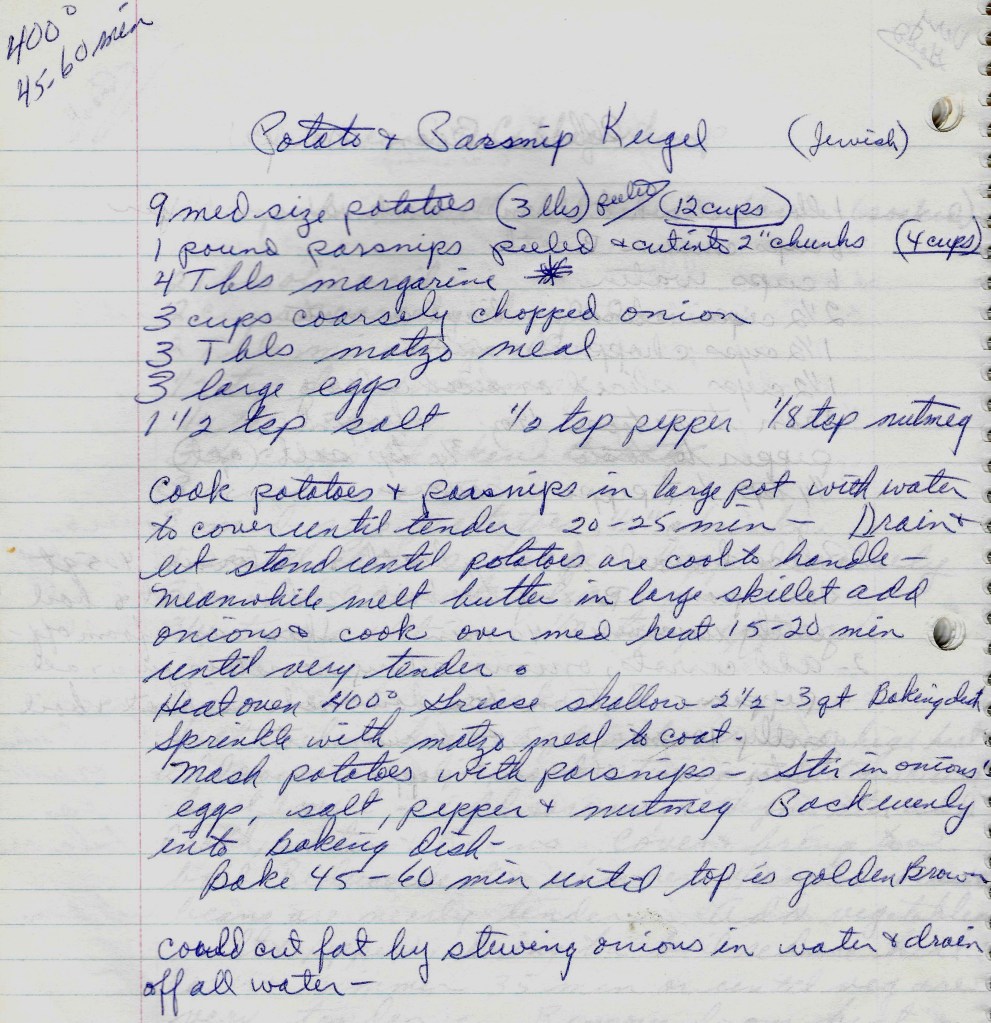 400°
45-60 min
Potato & Parsnip Kugel (Jewish)
9 med size potatoes (3 lbs) peeled (12 cups)
1 pound parsnips peeled & cut into 2" chunks (4 cups)
4 Tbls margarine
3 cups coarsely chopped onion
3 Tbls matzo meal
3 large eggs
1 1/2 tsp salt 1/2 tsp pepper 1/8 tsp nutmeg
Cook potatoes & parsnips in large pot with water
to cover until tender 20-25 min - Drain &
let stand until potatoes are cool to handle -
Meanwhile melt butter in large skillet add
onions & cook over med heat 15-20 min
until very tender.
Heat oven 400°. Grease shallow 2 1/2 - 3 qt Baking dish
Sprinkle with matzo meal to coat.
Mash potatoes with parsnips - Stir in onions
eggs, salt, pepper & nutmeg Pack evenly
into baking dish -
Bake 45-60 min until top is golden Brown
could cut fat by stewing onions in water & drain
off all water -